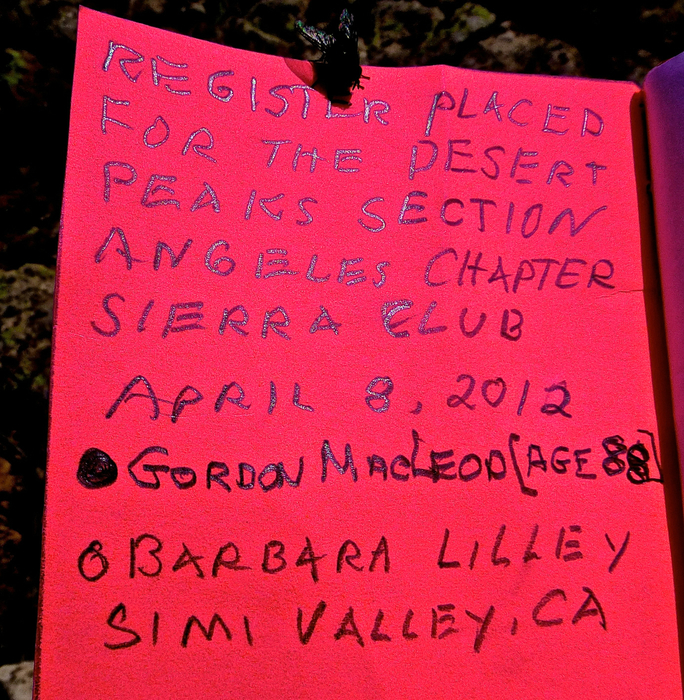 REGISTER PLACED
FOR THE DESERT
PEAKS SECTION
ANGELES CHAPTER
SIERRA CLUB
APRIL 8, 2012
● GORDON MACLEOD [AGE 88]
BARBARA LILLEY
SIMI VALLEY, CA